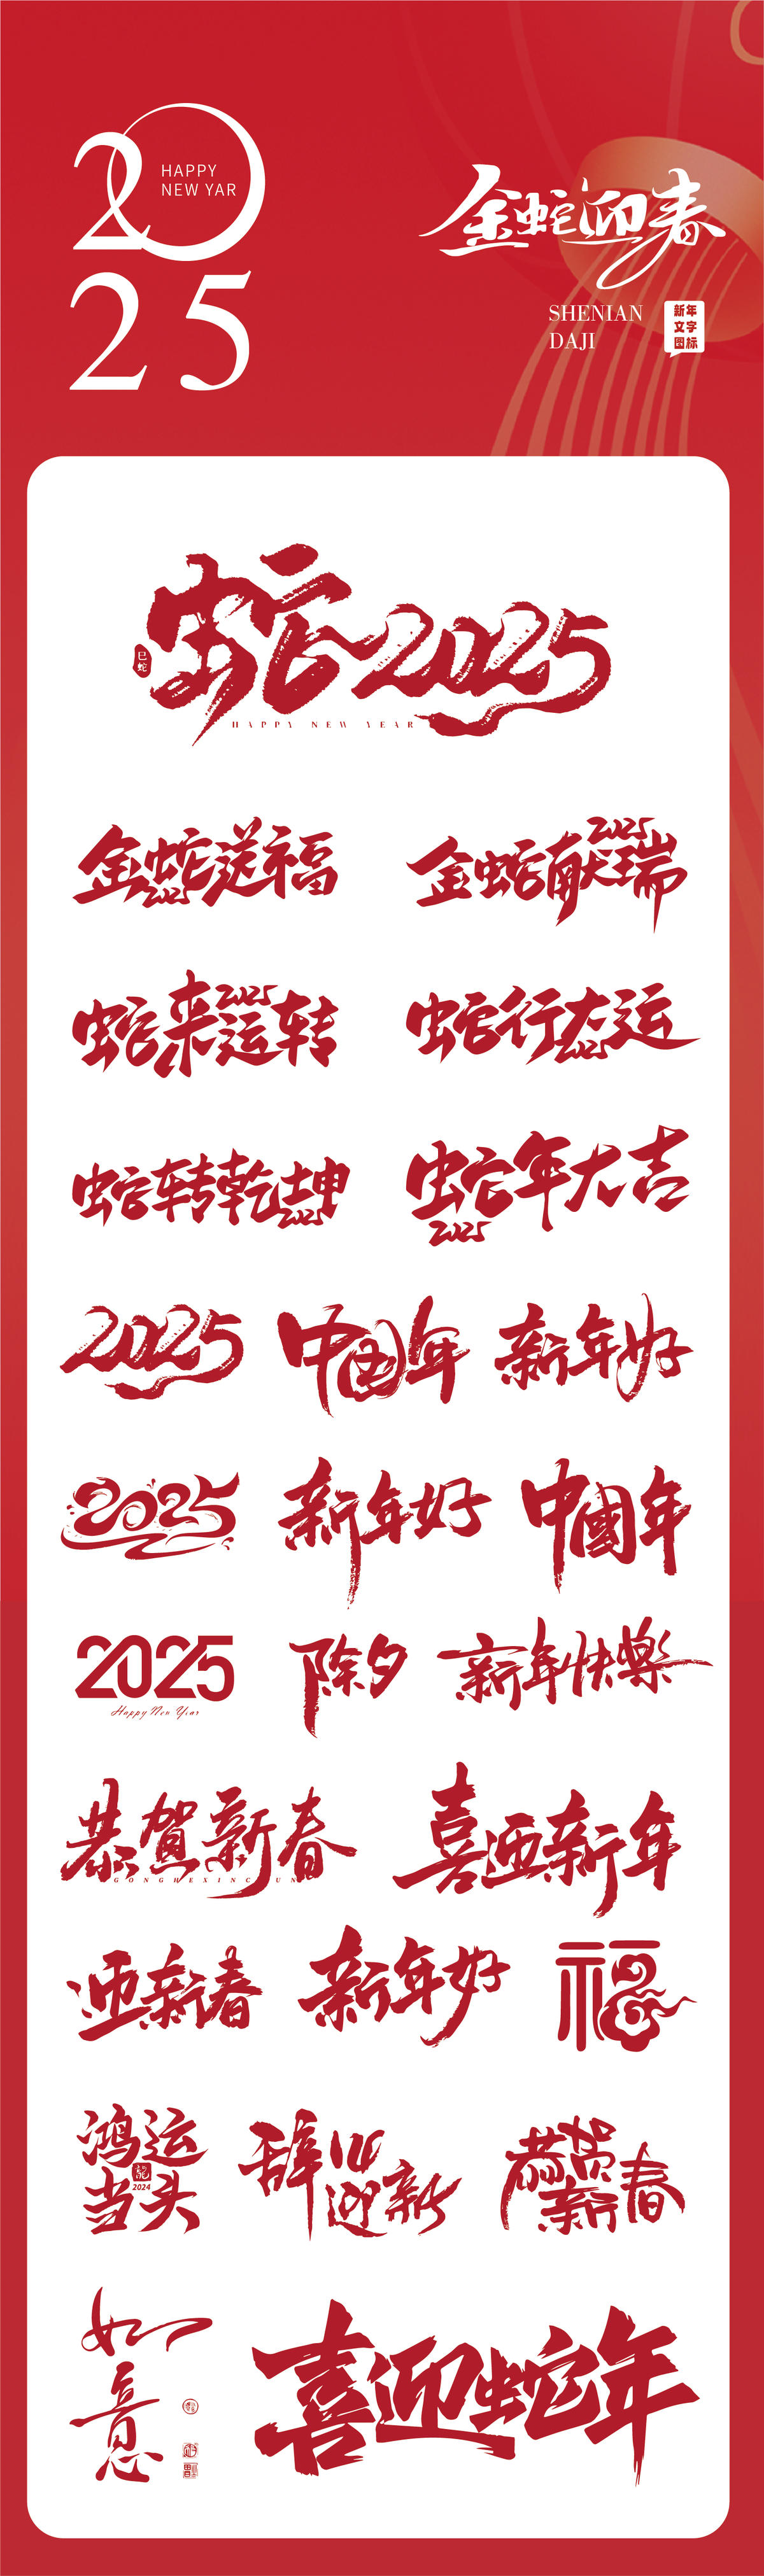 2025
HAPPY
NEW YAR
金蛇迎春
SHENIAN
DAJI
新年
文字
图标
蛇2025
巳蛇
HAPPY NEW YEAR
金蛇送福
2025
金蛇献瑞
2025
蛇来运转
2025
蛇行大运
2025
蛇转乾坤
2025
蛇年大吉
2025
2025
中国年
新年好
2025
新年好
中國年
2025
Happy New Year
除夕
新年快樂
恭賀新春
GONGHEXINC UN
喜迎新年
迎新春
新年好
福
鸿运
当头
龍
2024
辞旧
迎新
恭贺
新春
如
意
喜迎蛇年